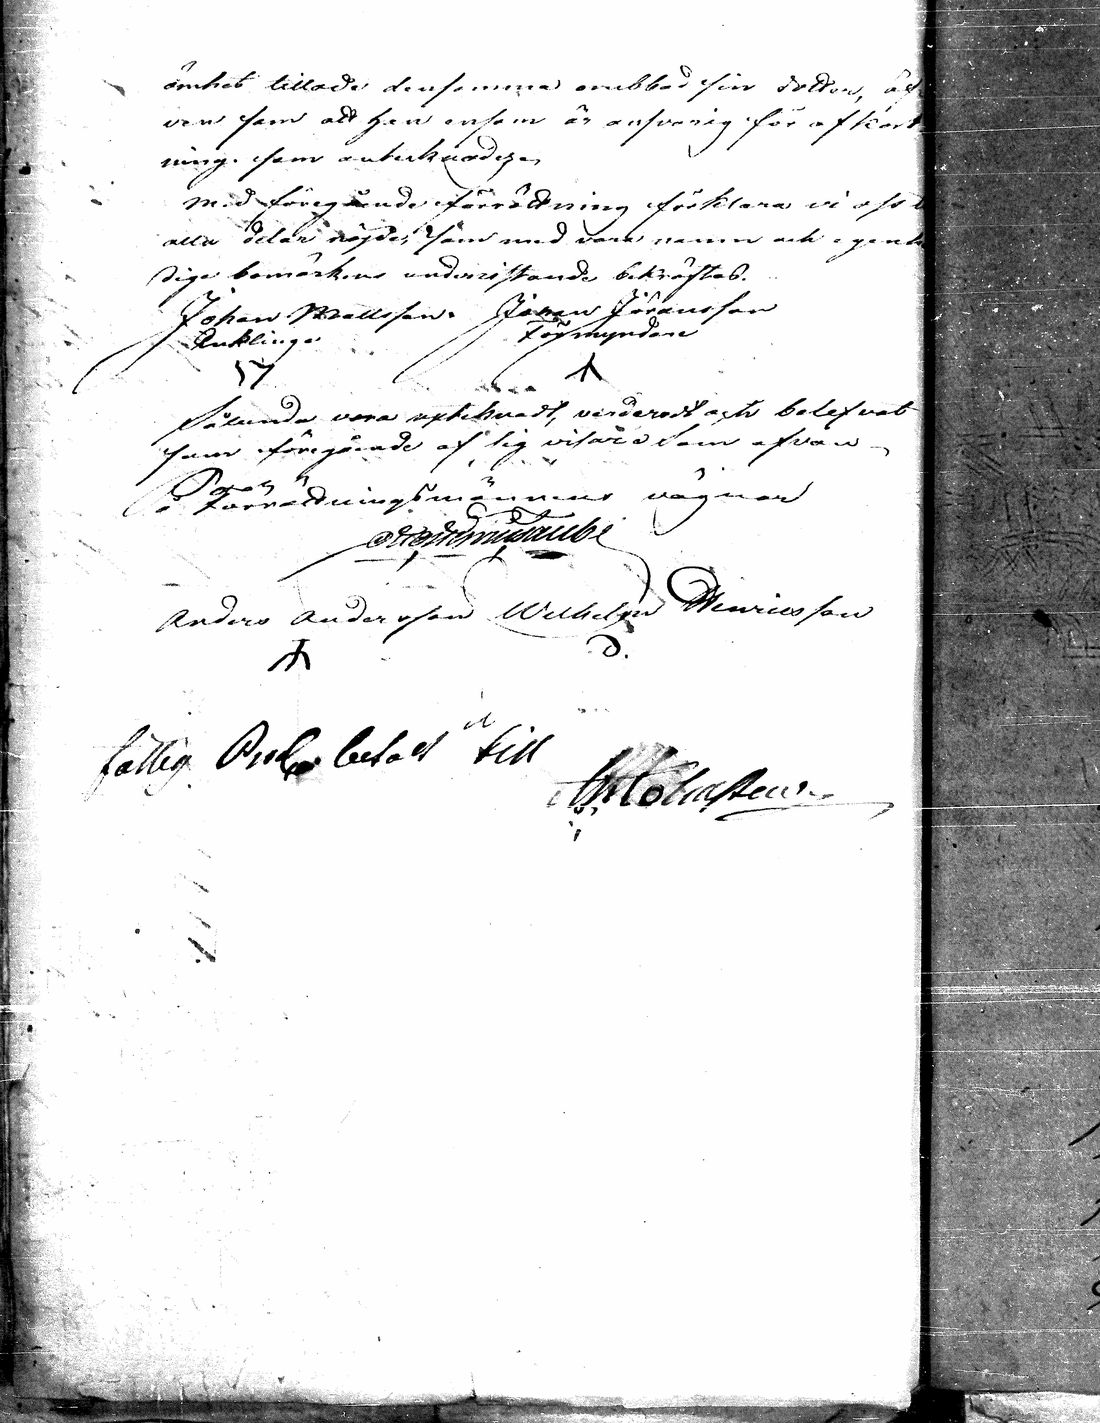 ömhet tillade densamma orubbad sin dotter, äf
ven som att han ensam är ansvarig för afkort
ning. som anteknades
Med föregående förrättning förklara vi oss
alla delar nöjde, som med våra namn och egenhän
dige bomärken undertstående bekräftas.
Johan Mattsson. Johan Jöransson
Enklinge Förmyndare
Sålunda vara upteknadt, värderadt och belefvat
sum föregående af sig visar Som ofvan
På Förrättningsmännens vägnar
Anders Andersson Wilhelm Henricsson
D.
fattig Proc. betalt till